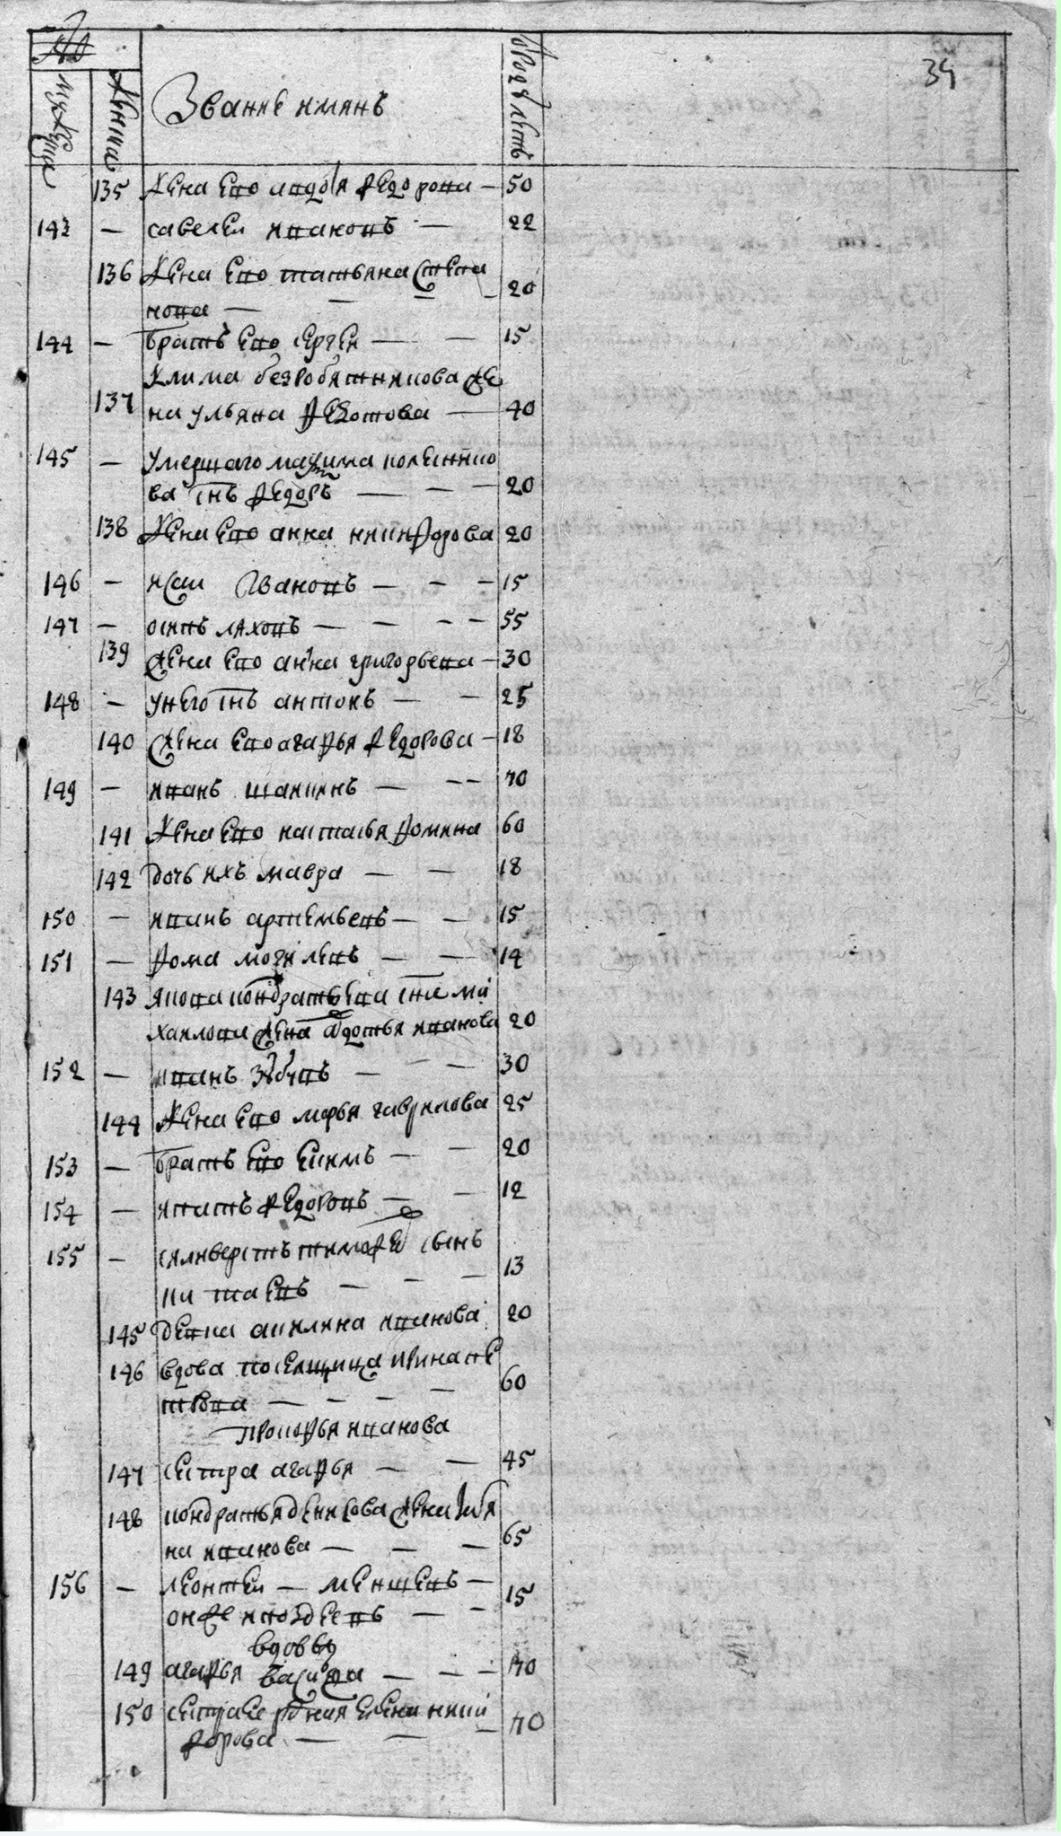 34
№
мужеска
женска
Звание имянъ
сколко летъ
135 жена ево авдотья федорова — 50
143 — савелеи ивановъ — 22
136 жена ево татьяна степа
нова — — — — 20
144 — братъ ево сергеи — — 15
Клима безробятникова же
137 на ульяна федотова — 40
145 — умершаго максима коленико
ва снъ федоръ — — — 20
138 жена ево анна никифорова 20
146 — исаи Ивановъ — — — 15
147 — осипъ ляховъ — — — — 55
139 жена ево анна григорьева — 30
148 — у него снъ антонъ — — 25
140 жена ево агафья федорова — 18
149 — иванъ шапкинъ — — — 70
141 жена ево настасья фомина 60
142 дочь ихъ мавра — — 18
150 — иванъ артемьевъ — — 15
151 — фома могилевъ — — 14
143 якова кондратьева сна ми
хаилова жена авдотья иванова 20
152 — иванъ зубовъ — — 30
144 жена ево марья гаврилова 25
153 — братъ ево екимъ — — 20
154 — игнатъ федоровъ — — 12
155 — селиверстъ тимофеевъ сынъ
китаевъ — — — 13
145 девка акилина иванова 20
146 вдова поселщица ирина пе
трова — — — — 60
прокофья иванова
147 сестра агафья — — 45
148 кондратья денисова жена улья
на иванова — — — 65
156 — леонтеи — меншевъ — 15
он же игоздевъ — —
вдовы
149 агафья василева — — — 70
150 сестра ее родная елена ники
форова — — — 70